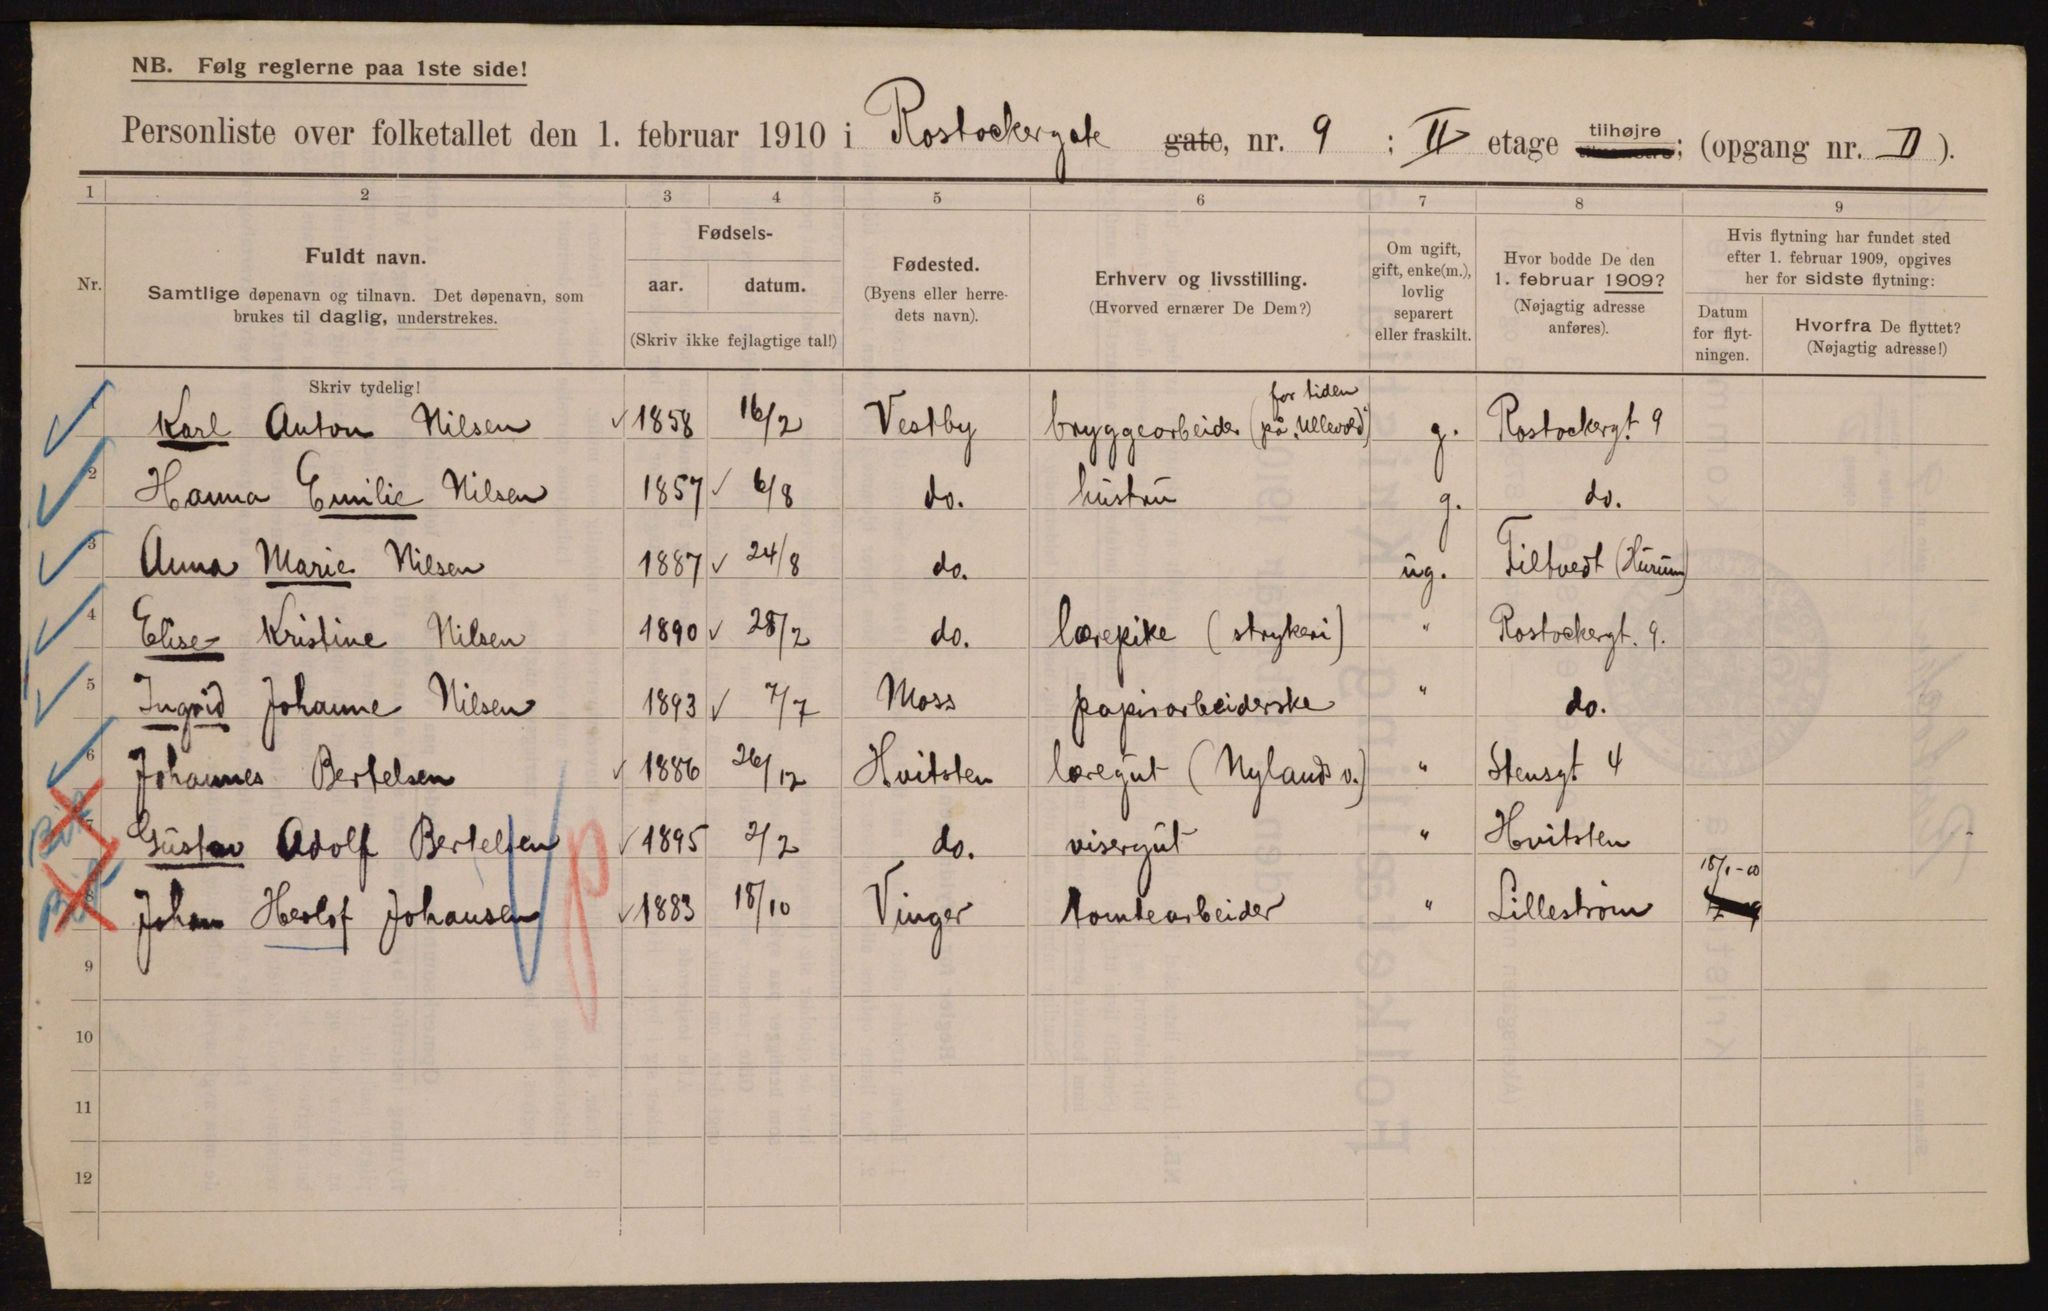 NB. Følg reglerne paa 1ste side!
Personliste over folketallet den 1. februar 1910 i Rostockergate gate, nr. 9 ; II etage tilhøjre ; (opgang nr. II ).
1 2 3 4 5 6 7 8 9
Nr.
Fuldt navn.
Samtlige døpenavn og tilnavn. Det døpenavn, som
brukes til daglig, understrekes.
Skriv tydelig!
Fødsels-
aar. datum.
(Skriv ikke fejlagtige tal!)
Fødested.
(Byens eller herre-
dets navn).
Erhverv og livsstilling.
(Hvorved ernærer De Dem?)
Om ugift,
gift, enke(m.),
lovlig
separert
eller fraskilt.
Hvor bodde De den
1. februar 1909?
(Nøjagtig adresse
anføres).
Hvis flytning har fundet sted
efter 1. februar 1909, opgives
her for sidste flytning:
Datum
for flyt-
ningen.
Hvorfra De flyttet?
(Nøjagtig adresse!)
1 Karl Anton Nilsen 1858 16/2 Vestby bryggearbeider (for tiden på "Ullevold") g. Rostockergt. 9
2 Hanna Emilie Nilsen 1857 6/8 do. hustru g. do.
3 Anna Marie Nilsen 1887 24/8 do. ug. Filtvedt (Hurum)
4 Elise Kristine Nilsen 1890 28/2 do. lærepike (strykeri) " Rostockergt. 9.
5 Ingrid Johanne Nilsen 1893 7/7 Moss papirarbeiderske " do.
6 Johannes Bertelsen 1886 26/12 Hvitsten læregut (Nylands v.) " Stensgt 4
7 Gustav Adolf Bertelsen 1895 2/2 do. visergut " Hvitsten
8 Johan Herlof Johansen 1883 18/10 Vinger tomtearbeider " Lillestrøm
9
10
11
12